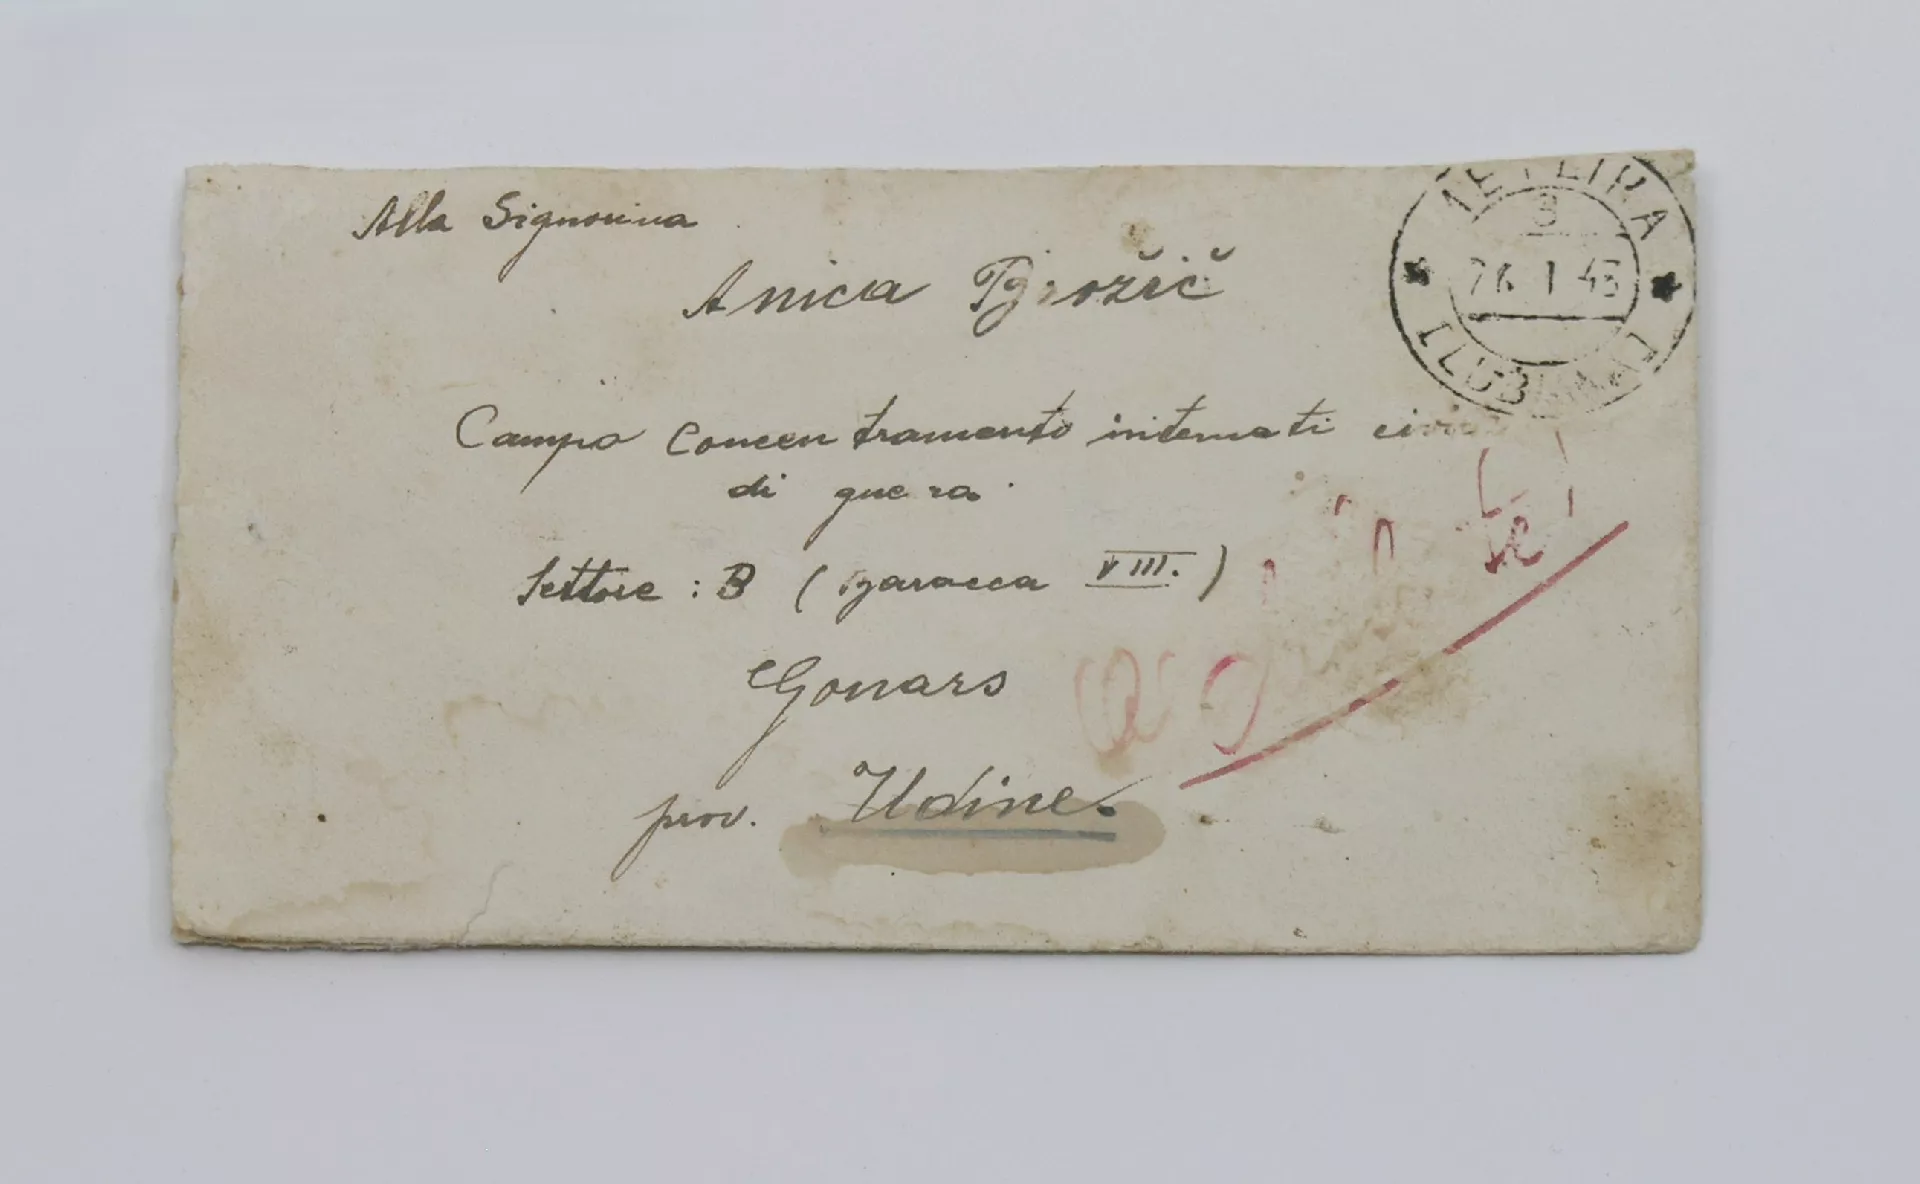 Alla Signorina
Anica Božič
Campo Concentramento internati civili
di guera
Settore : B ( Baracca VIII. )
Gonars
prov. Udine.
METLIKA
3
26 1 43
LUBIANA